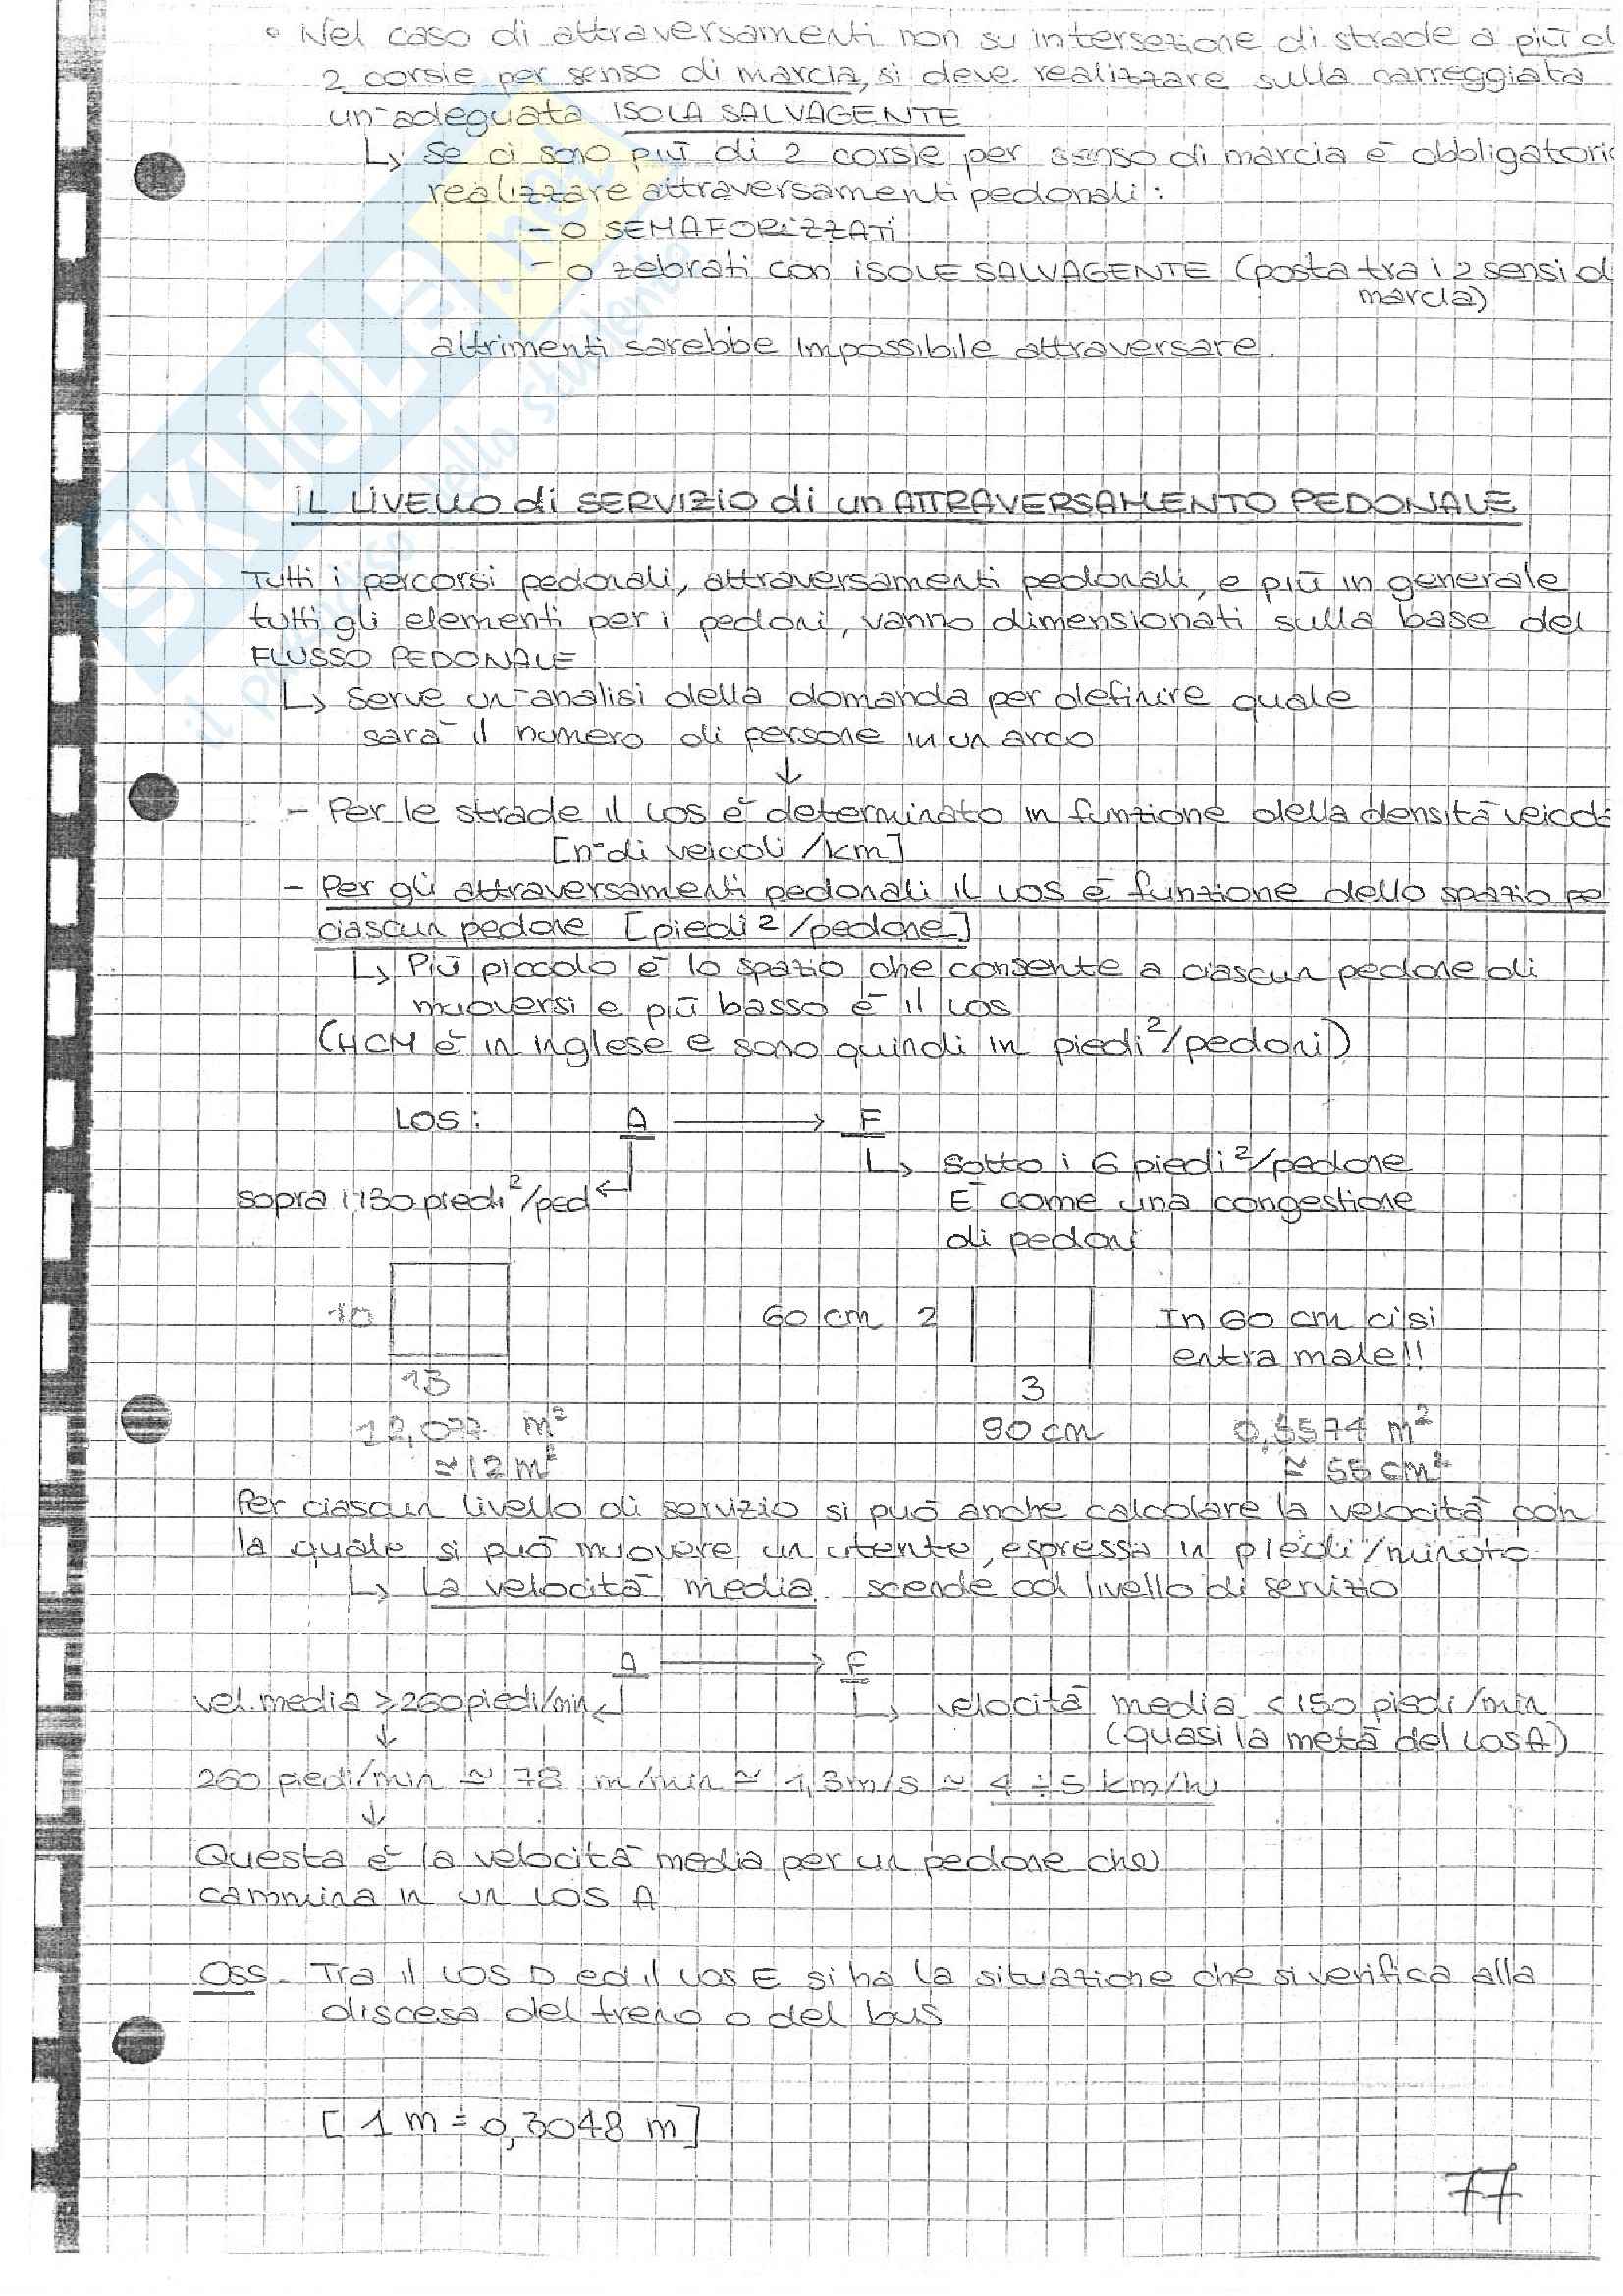 ° Nel caso di attraversamenti non su intersezione di strade a più d
2 corsie per senso di marcia, si deve realizzare sulla carreggiata
un'adeguata ISOLA SALVAGENTE
↳ Se ci sono più di 2 corsie per senso di marcia è obbligatori
realizzare attraversamenti pedonali:
- o SEMAFORIZZATI
- o zebrati con ISOLE SALVAGENTE (posta tra i 2 sensi d
marcia)
altrimenti sarebbe impossibile attraversare.
IL LIVELLO di SERVIZIO di un ATTRAVERSAMENTO PEDONALE
Tutti i percorsi pedonali, attraversamenti pedonali, e più in generale
tutti gli elementi per i pedoni, vanno dimensionati sulla base del
FLUSSO PEDONALE
↳ Serve un'analisi della domanda per definire quale
sarà il numero di persone in un arco
↓
- Per le strade il LOS è determinato in funzione della densità veicol
[n° di veicoli /km]
- Per gli attraversamenti pedonali il LOS è funzione dello spazio pe
ciascun pedone [piedi²/pedone]
↳ Più piccolo è lo spazio che consente a ciascun pedone di
muoversi e più basso è il LOS
(HCM è in inglese e sono quindi in piedi²/pedoni)
LOS: A → F
↳ sotto i 6 piedi²/pedone
sopra i 130 piedi²/ped ↵ È come una congestione
di pedoni
10 60 cm 2 In 60 cm ci si
entra male!!
13 3
12,077 m² 90 cm 0,5574 m²
≃ 12 m² ≃ 55 cm²
Per ciascun livello di servizio si può anche calcolare la velocità con
la quale si può muovere un utente, espressa in piedi/minuto
↳ La velocità media scende col livello di servizio
A → F
vel. media ≥ 260 piedi/min ↵ ↳ velocità media < 150 piedi/min
↓ (quasi la metà del LOS A)
260 piedi/min ≃ 78 m/min ≃ 1,3 m/s ≃ 4 ÷ 5 km/h
↓
Questa è la velocità media per un pedone che
cammina in un LOS A.
Oss. Tra il LOS D ed il LOS E si ha la situazione che si verifica alla
discesa del treno o del bus
[1 m = 0,3048 m]
77
SKUOLA.net
il paradiso dello studente